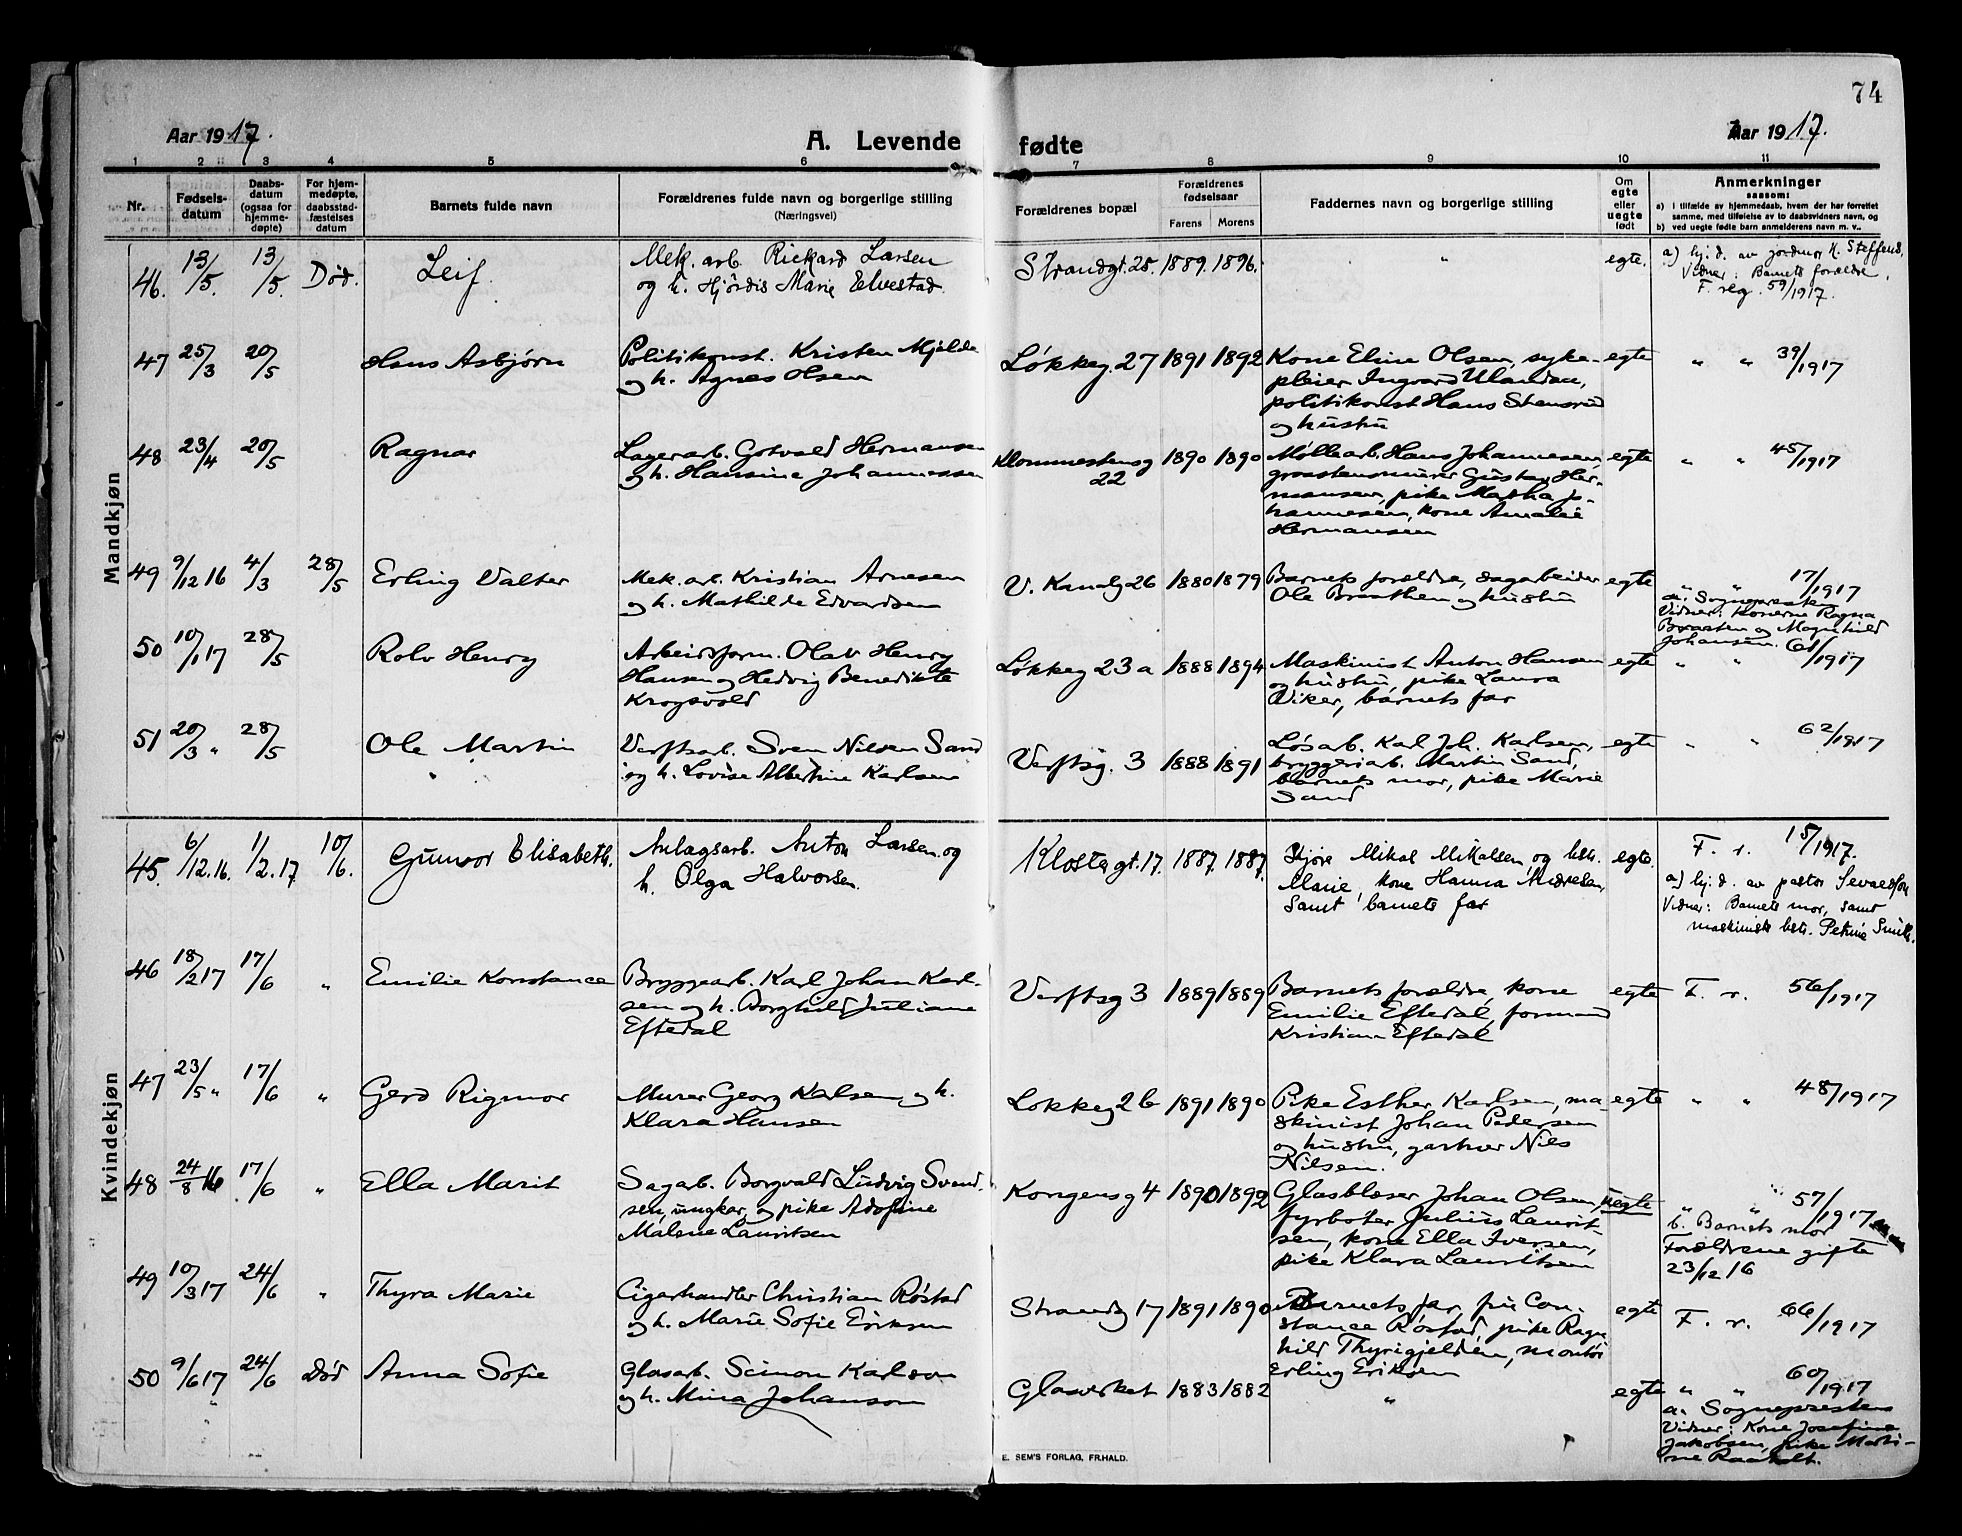 74
Aar 1917.
A. Levende
fødte
Aar 1917.
1 2 3 4 5 6 7 8 9 10 11
Nr.
Fødsels-
datum
Daabs-
datum
(ogsaa for
hjemme-
døpte)
For hjem-
medøpte,
daabsstad-
fæstelses
datum
Barnets fulde navn
Forældrenes fulde navn og borgerlige stilling
(Næringsvei)
Forældrenes bopæl
Forældrenes
fødselsaar
Farens Morens
Faddernes navn og borgerlige stilling
Om
egte
eller
uegte
født
Anmerkninger
sansom:
a) i tilfælde av hjemmedaab, hvem der har forrettet
samme, med tilføielse av to daabsvidners navn, og
b) ved uegte fødte barn anmelderens navn m. v..
Mandkjøn
46. 13/5. 13/5. Død. Leif
Mek. arb. Rickard Larsen
og h. Hjördis Marie Elvestad.
Strandgt. 25. 1889. 1896.
"
egte.
a) hj. d. av jordmor H. Steffens.
Vidner: Barnets forældre.
F. reg. 59/1917.
47 25/3 20/5 Hans Asbjørn
Politikonst. Kristen Mjelde
og h. Agnes Olsen
Løkkeg. 27 1891 1892
Kone Eline Olsen, syke-
pleier Ingvard
politikonst Hans Stensrud
og hustru
egte
" " 39/1917
48 23/4 20/5 Ragnar
Lagerarb. Gotvald Hermansen
og h. Hansine Johannessen
22 1890 1890
Møllearb. Hans Johannesen,
Gustav Her-
mansen, pike Martha Jo-
hannesen, kone Amalie
Hermansen
egte
" " 45/1917
49 9/12 16 4/3 28/5 Erling Valter
Mek. arb. Kristian Arnesen
og h. Mathilde Edvardsen
V. Kanalg 26 1880 1879
Barnets forældre, sagarbeider
Ole Braathen og hustru
egte
" " 17/1917
a. Sogneprest
Vidner: Konerne Ragna
Braaten og Magnhild
Johansen.
50 10/1 17 28/5 Rolv Henry
Arbeidsform. Olav Henry
Hansen og Hedvig Benedikte
Krogsvold
Løkkeg 23 a 1888 1894
Maskinist Anton Hansen
og hustru, pike Laura
Viker, barnets far
egte
" " 61/1917
51 20/3 " 28/5 Ole Martin
Verftsarb. Sven Nilsen Sand
og h. Lovise Albertine Karlsen
Verftsg. 3 1888 1891
Løsarb. Karl Joh. Karlsen,
bryggeriarb. Martin Sand,
barnets mor, pike Marie
Sand
egte
" " 62/1917
Kvindekjøn
45. 6/12.16. 1/2.17 10/6. Gunvor Elisabeth.
Anlagsarb. Anton Larsen og
h. Olga Halvorsen.
Klostergt. 17. 1887. 1887.
Mikal Mikalsen og hstr.
Marie, kone Hanna Andresen,
samt barnets far
egte.
F. r. 15/1917.
a) hj. d. av pastor Sevaldson
Vidner: Barnets mor, samt
maskinists hstr. Petrine Smith.
46 18/2 17 17/6 " Emilie Konstance
Bryggearb. Karl Johan Karl-
sen og h. Borghild Juliane
Eftedal
Verftsg 3 1889 1889
Barnets forældre, kone
Emilie Eftedal, formand
Kristian Eftedal
egte
F. r. 56/1917
47 23/5 " 17/6 " Gerd Rigmor
Murer Georg Karlsen og h.
Klara Hansen
Løkkeg 26 1891 1890
Pike Esther Karlsen, ma-
skinist Johan Pedersen
og hustru, gartner Nils
Nilsen.
egte
" " 48/1917
48 24/8 16 17/6 " Ella Marit
Sagarb. Borgvald Ludvig Svend-
sen, ungkar, og pike Adofine
Malene Lauritsen
Kongensg 4 1890 1892
Glasblæser Johan Olsen,
fyrbøter Julius Laurit-
sen, kone Ella Iversen,
pike Klara Lauritsen
uegte
" " 57/1917
b. Barnets mor
Forældrene gifte
23/12 16
49 10/3 17 24/6 " Thyra Marie
Cigarhandler Christian Röstad
og h. Marie Sofie Eriksen
Strandg 17 1891 1890
Barnets far, fru Con-
stance Röstad, pike Ragn-
hild Thyrigjelden, montör
Erling Eriksen
egte
F. r. 66/1917
50 9/6 17 24/6 Død Anna Sofie
Glasarb. Seimon Karlson
og h. Mina Johanson
Glasverket 1883 1882
"
egte
" " 60/1917
a. Sognepresten
Vidner: Kone Josefine
Jakobsen, pike Marti-
ne Raaholt.
E. SEM'S FORLAG, FR.HALD.